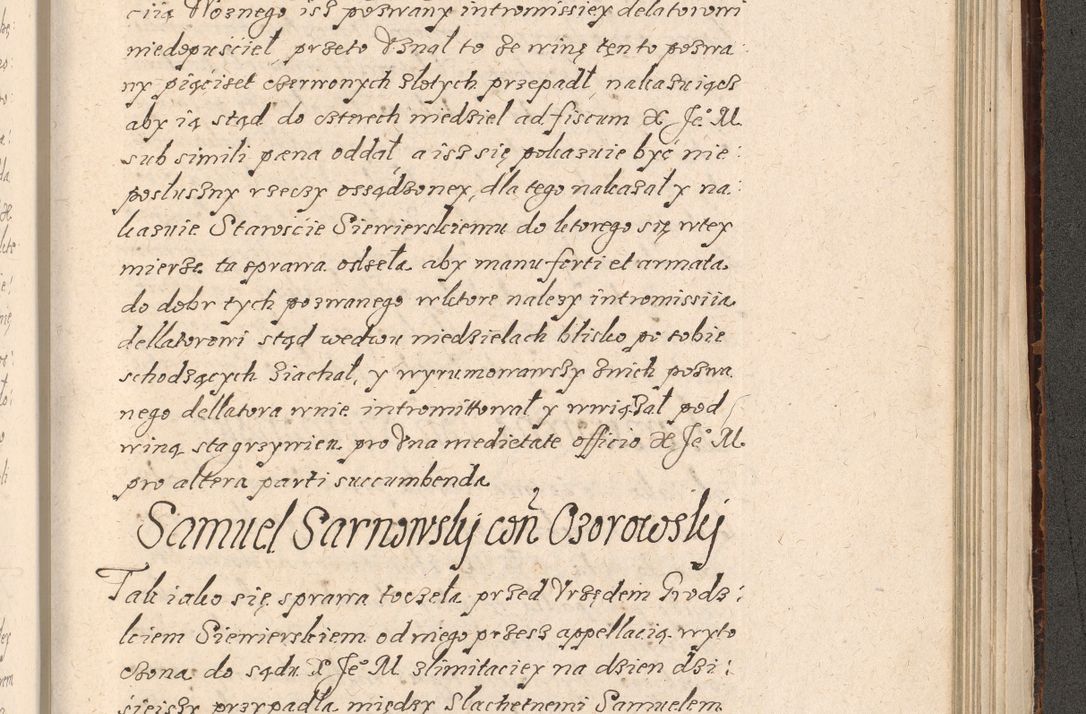 ciią Woznego isz pozwany intromissiey delatorowi
niedopuściel, przeto Vznal to ze winę tęn to pozwa:
ny pięćiset czerwonych złotych przepadł, nakazuiącz
aby ią stąd do czterech niedziel ad fiscum X Je° M
sub simili pæna oddał, a isz się pokazuie być nie:
posłuszny rzeczy ossądzoney, dla tego nakazał y na:
kazuie Staroscie Siewierskiemu do ktorego się wtey
mierze ta sprawa odseła aby manu forti et armata
do dobr tych pozwanego wktore nalezy intromissiia
dellatorowi stąd wedwu niedzielach blisko po tobie
schodzących ziachał, y wyrumowawszy zwich pozwa
nego dellatora wnie intromittował y wwiązał pod
winą sta grzywien pro Vna medietate officio X Je° M
pro altera parti succumbenda
Samuel Sarnowsky con Ozorowsky
Tak iako się sprawa toczeła przed Vrzędem Grodz:
kiem Siewierskiem od niego przesz appellacią wyto
czona do sądu X Je° M zlimitaciey na dzien dzi:
sieiszy przypadła między Slachetnemi Samuelem